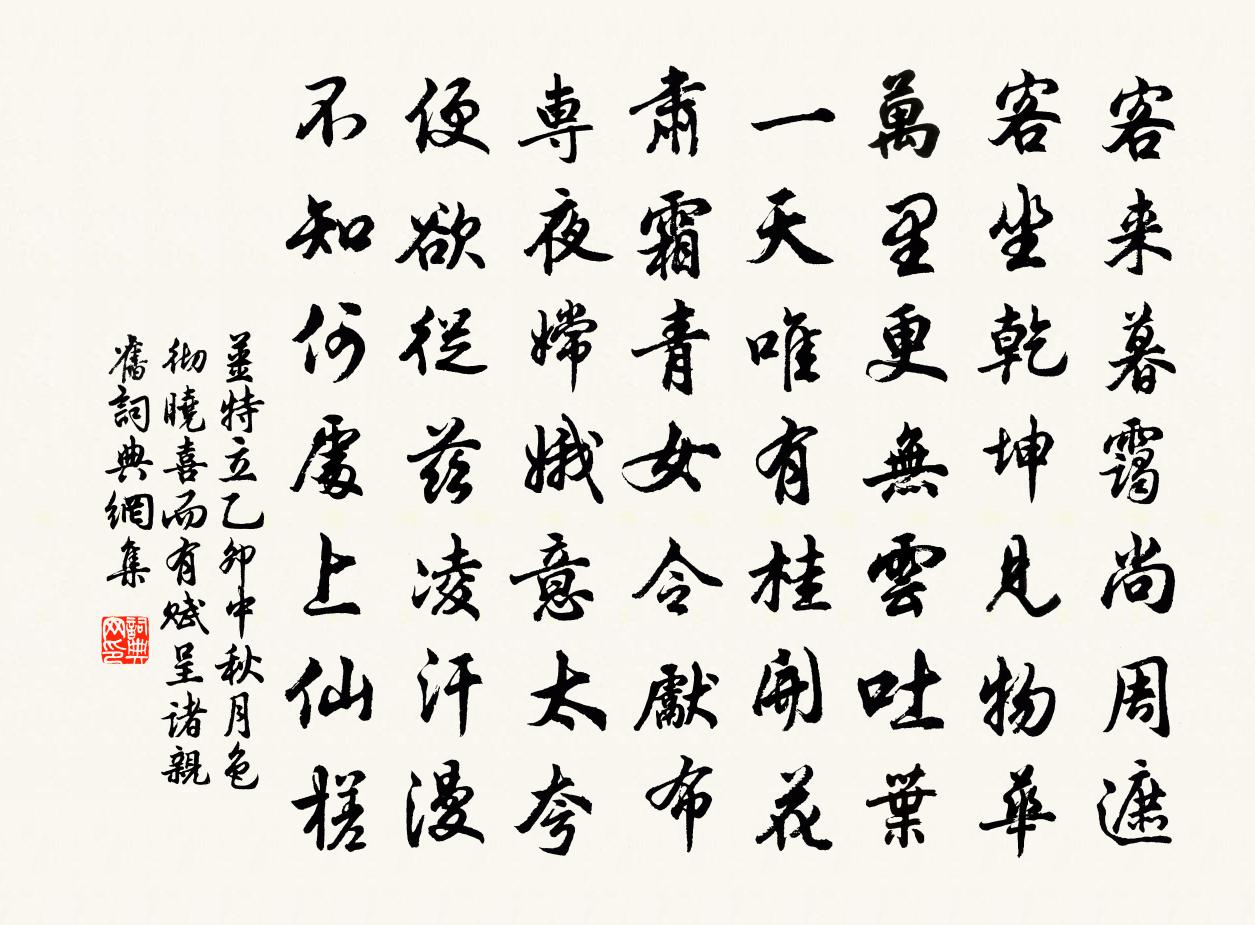 客来暮靄尚周遮
客坐乾坤見物華
萬里更無雲吐葉
一天唯有桂開花
肅霜青女令獻布
専夜嫦娥意太夸
便欲従茲凌汗漫
不知何處上仙槎
姜特立乙卯中秋月色
彻曉喜而有赋呈诸親
舊詞典網集
詞典网印